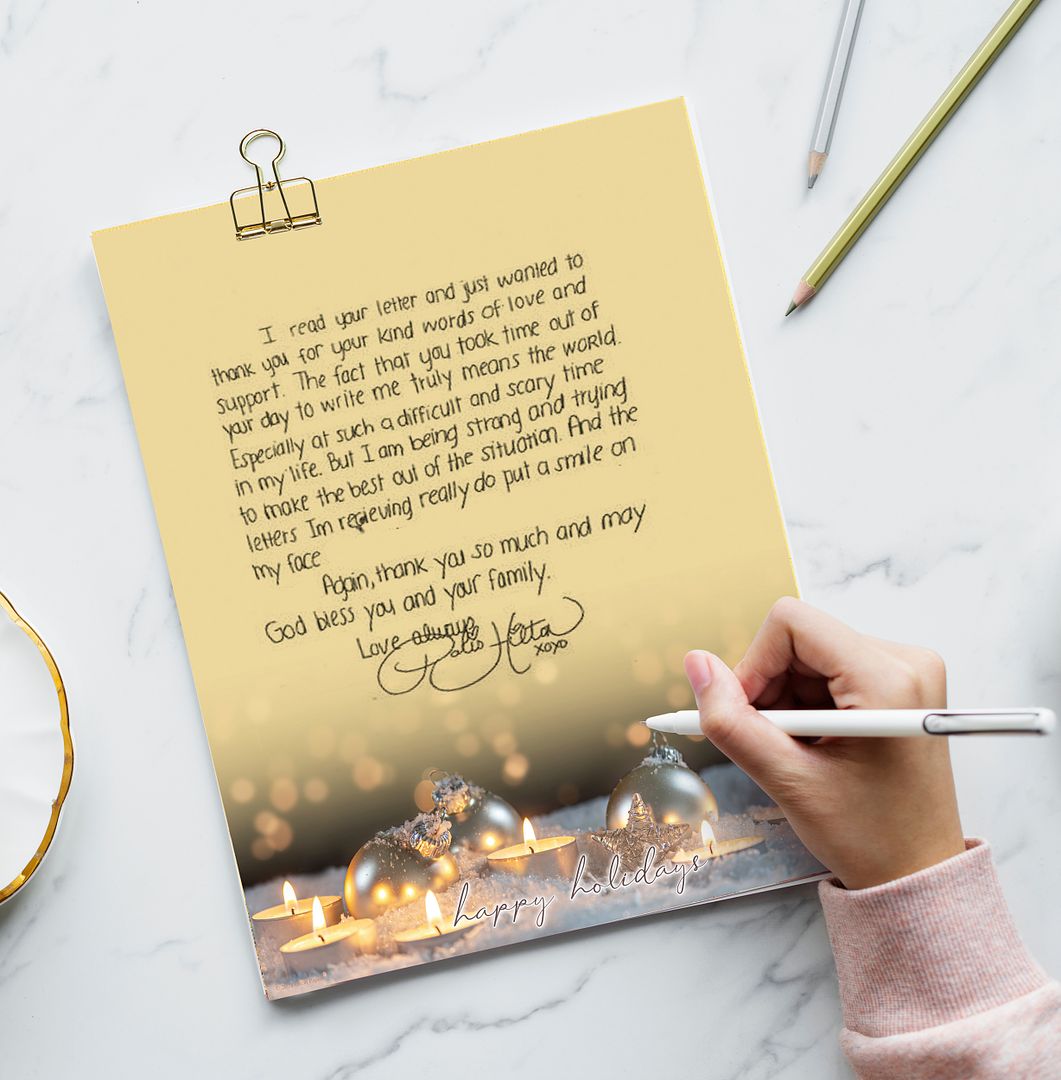 I read your letter and just wanted to
thank you for your kind words of love and
support. The fact that you took time out of
your day to write me truly means the world.
Especially at such a difficult and scary time
in my life. But I am being strong and trying
to make the best out of the situation. And the
letters Im recieving really do put a smile on
my face
Again, thank you so much and may
God bless you and your family.
Love always
Paris Hilton
xoxo
happy holidays